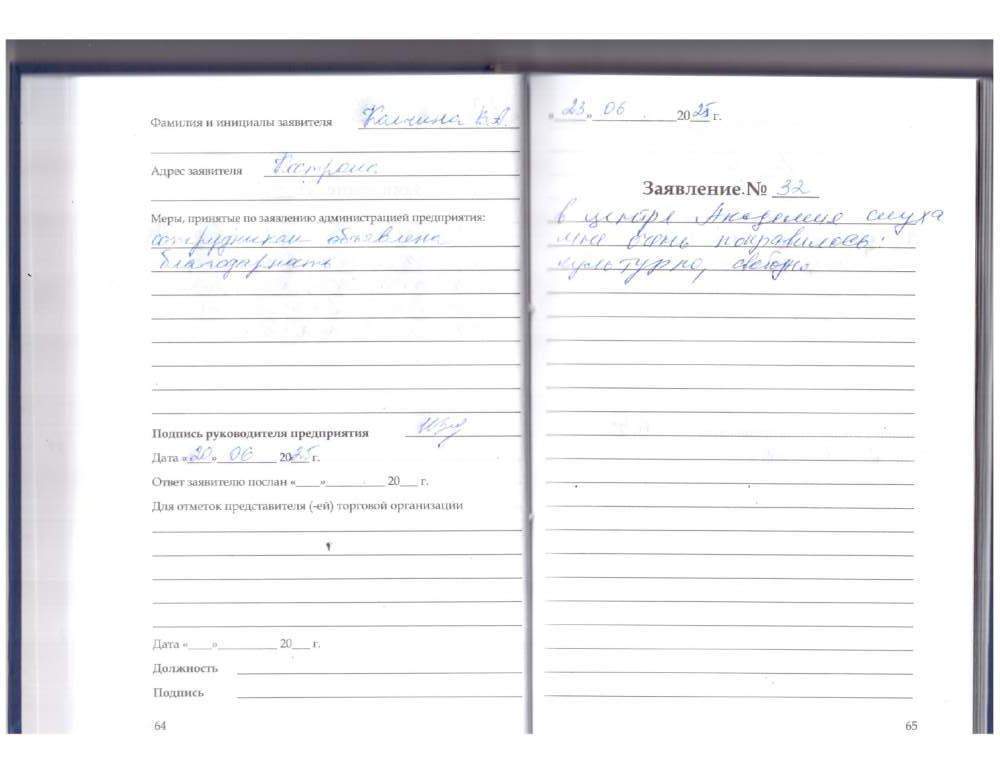 Фамилия и инициалы заявителя Колчина В.А.
Адрес заявителя Кострома
Меры, принятые по заявлению администрацией предприятия:
сотрудникам объявлена
благодарность
Подпись руководителя предприятия
Дата «20» 06 2025 г.
Ответ заявителю послан «___»_________ 20___ г.
Для отметок представителя (-ей) торговой организации
Дата «____»__________ 20___ г.
Должность
Подпись
64
«23» 06 2025 г.
Заявление № 32
в центре Академия слуха
мне очень понравилось:
культурно,
65